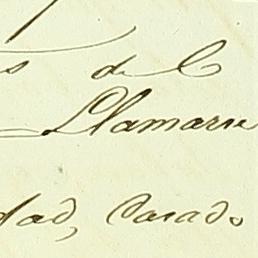 s de C
Llamarse
dad, Casado